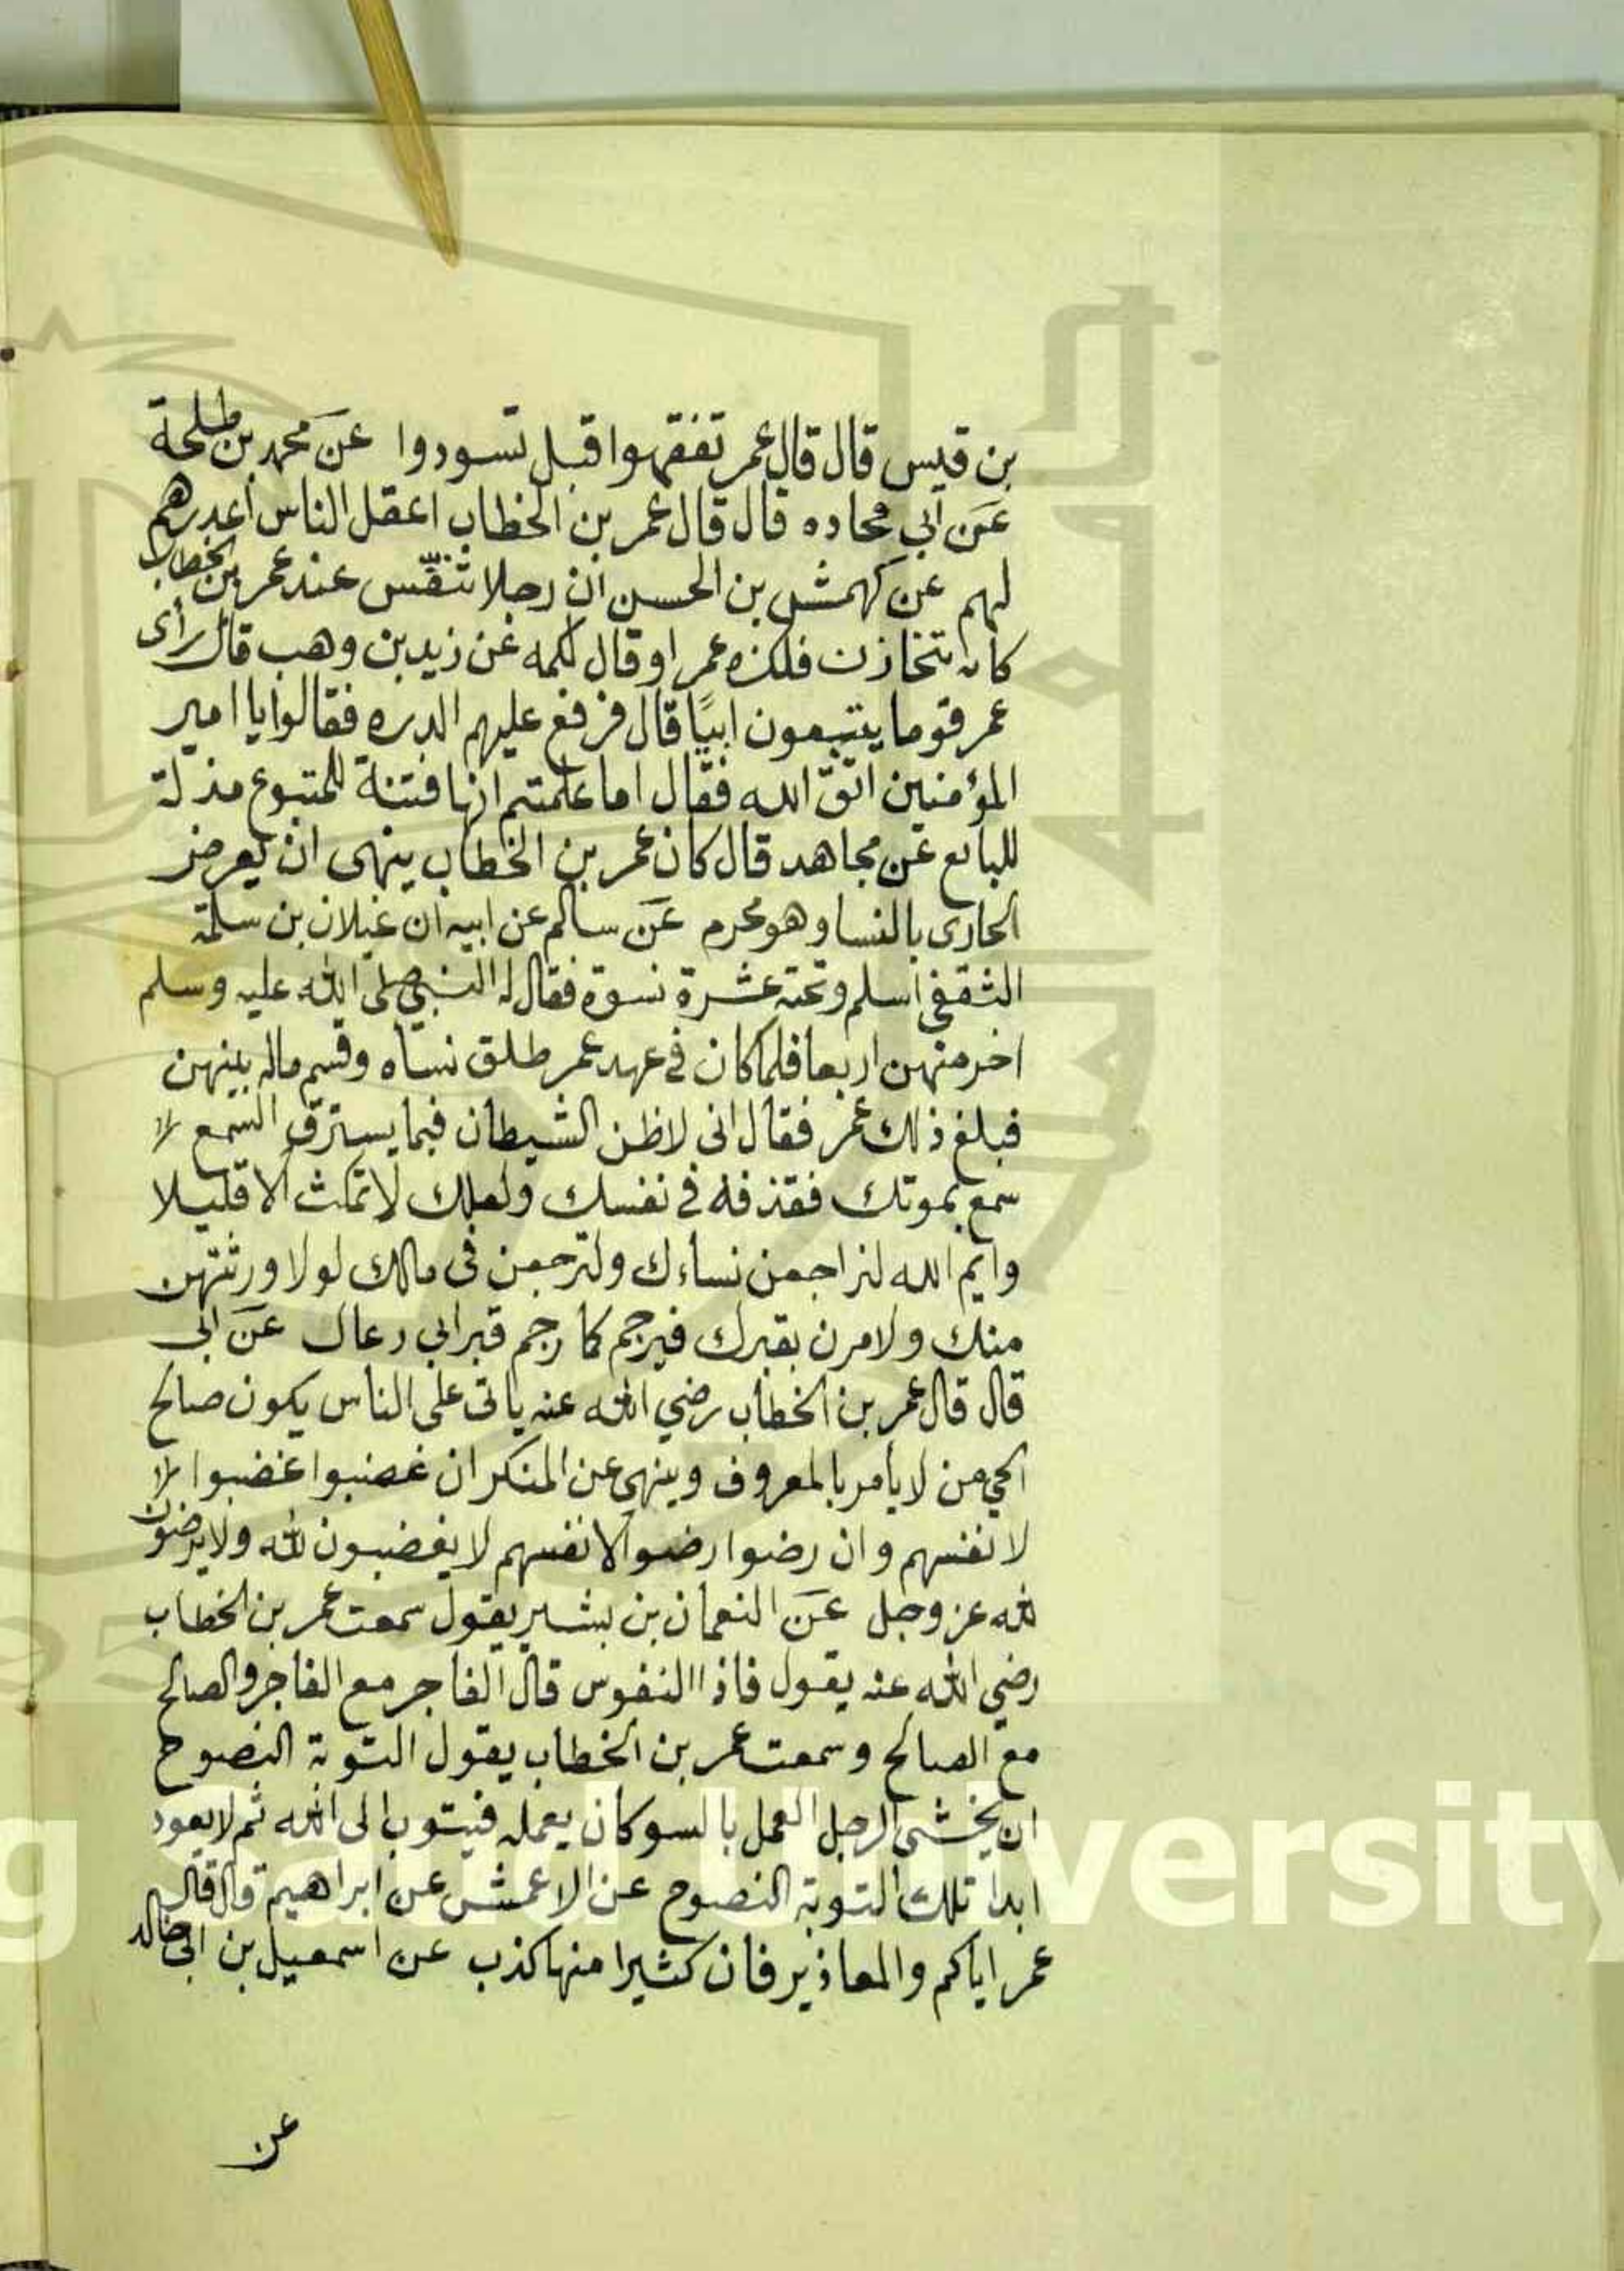 بن قيس قال قال عمر تفقهوا قبل تسودوا عن محمد بن طلحة
عن ابي محاده قال قال عمر بن الخطاب اعقل الناس أعذرهم
لهم عن كهمش بن الحسن ان رجلا تنفّس عند عمر بن الخطاب
كانه يتحازن فلكزه عمر او قال لكمه عن زيد بن وهب قال رأى
عمر قوما يتبعون ابيًا قال فرفع عليهم الدره فقالوا يا امير
المؤمنين اتق الله فقال اما علمتم انها فتنة للمتبوع مذلة
للبايع عن مجاهد قال كان عمر بن الخطاب ينهى ان يعرض
الحادى بالنسا وهو محرم عن سالم عن ابيه ان غيلان بن سلمة
الثقفي اسلم وتحته عشرة نسوة فقال له النبي صلى الله عليه وسلم
اختر منهن اربعا فلما كان في عهد عمر طلق نساه وقسم ماله بينهن
فبلغ ذلك عمر فقال انى لاظن الشيطان فيما يسترق السمع لا
سمع بموتك فقذفه في نفسك ولعلك لا تمكث الا قليلا
وايم الله لتراجعن نساءك ولترجعن فى مالك لولا ورثتهن
منك ولامرن بقبرك فيرجم كما رجم قبر ابي رعال عن ابى
قال قال عمر بن الخطاب رضي الله عنه ياتى على الناس يكون صالح
الحي من لا يأمر بالمعروف وينهى عن المنكر ان غضبوا غضبوا لا
لانفسهم وان رضوا رضوا لانفسهم لا يغضبون لله ولا يرضون
لله عز وجل عن النعمان بن بشير يقول سمعت عمر بن الخطاب
رضي الله عنه يقول فاذا النفوس قال الفاجر مع الفاجر والصالح
مع الصالح وسمعت عمر بن الخطاب يقول التوبة النصوح
ان يخشى الرجل العمل بالسو كان يعمله فيتوب الى الله ثم لا يعود
ابدا تلك التوبة النصوح عن الاعمش عن ابراهيم قال قال
عمر اياكم والمعاذير فان كثيرا منها كذب عن اسمعيل بن ابى خالد
عن